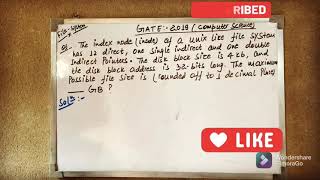 File-System
GATE:-2019 (Computer Science)
RIBED
Q) The index node (inode) of a unix like file system
has 12 direct, one single indirect and one double
Indirect Pointers. The disk block size is 4 kb, and
the disk block address is 32-bits long. The maximum
Possible file size is (rounded off to 1 decimal place)
___ GB ?
Sol:-
LIKE
Wondershare